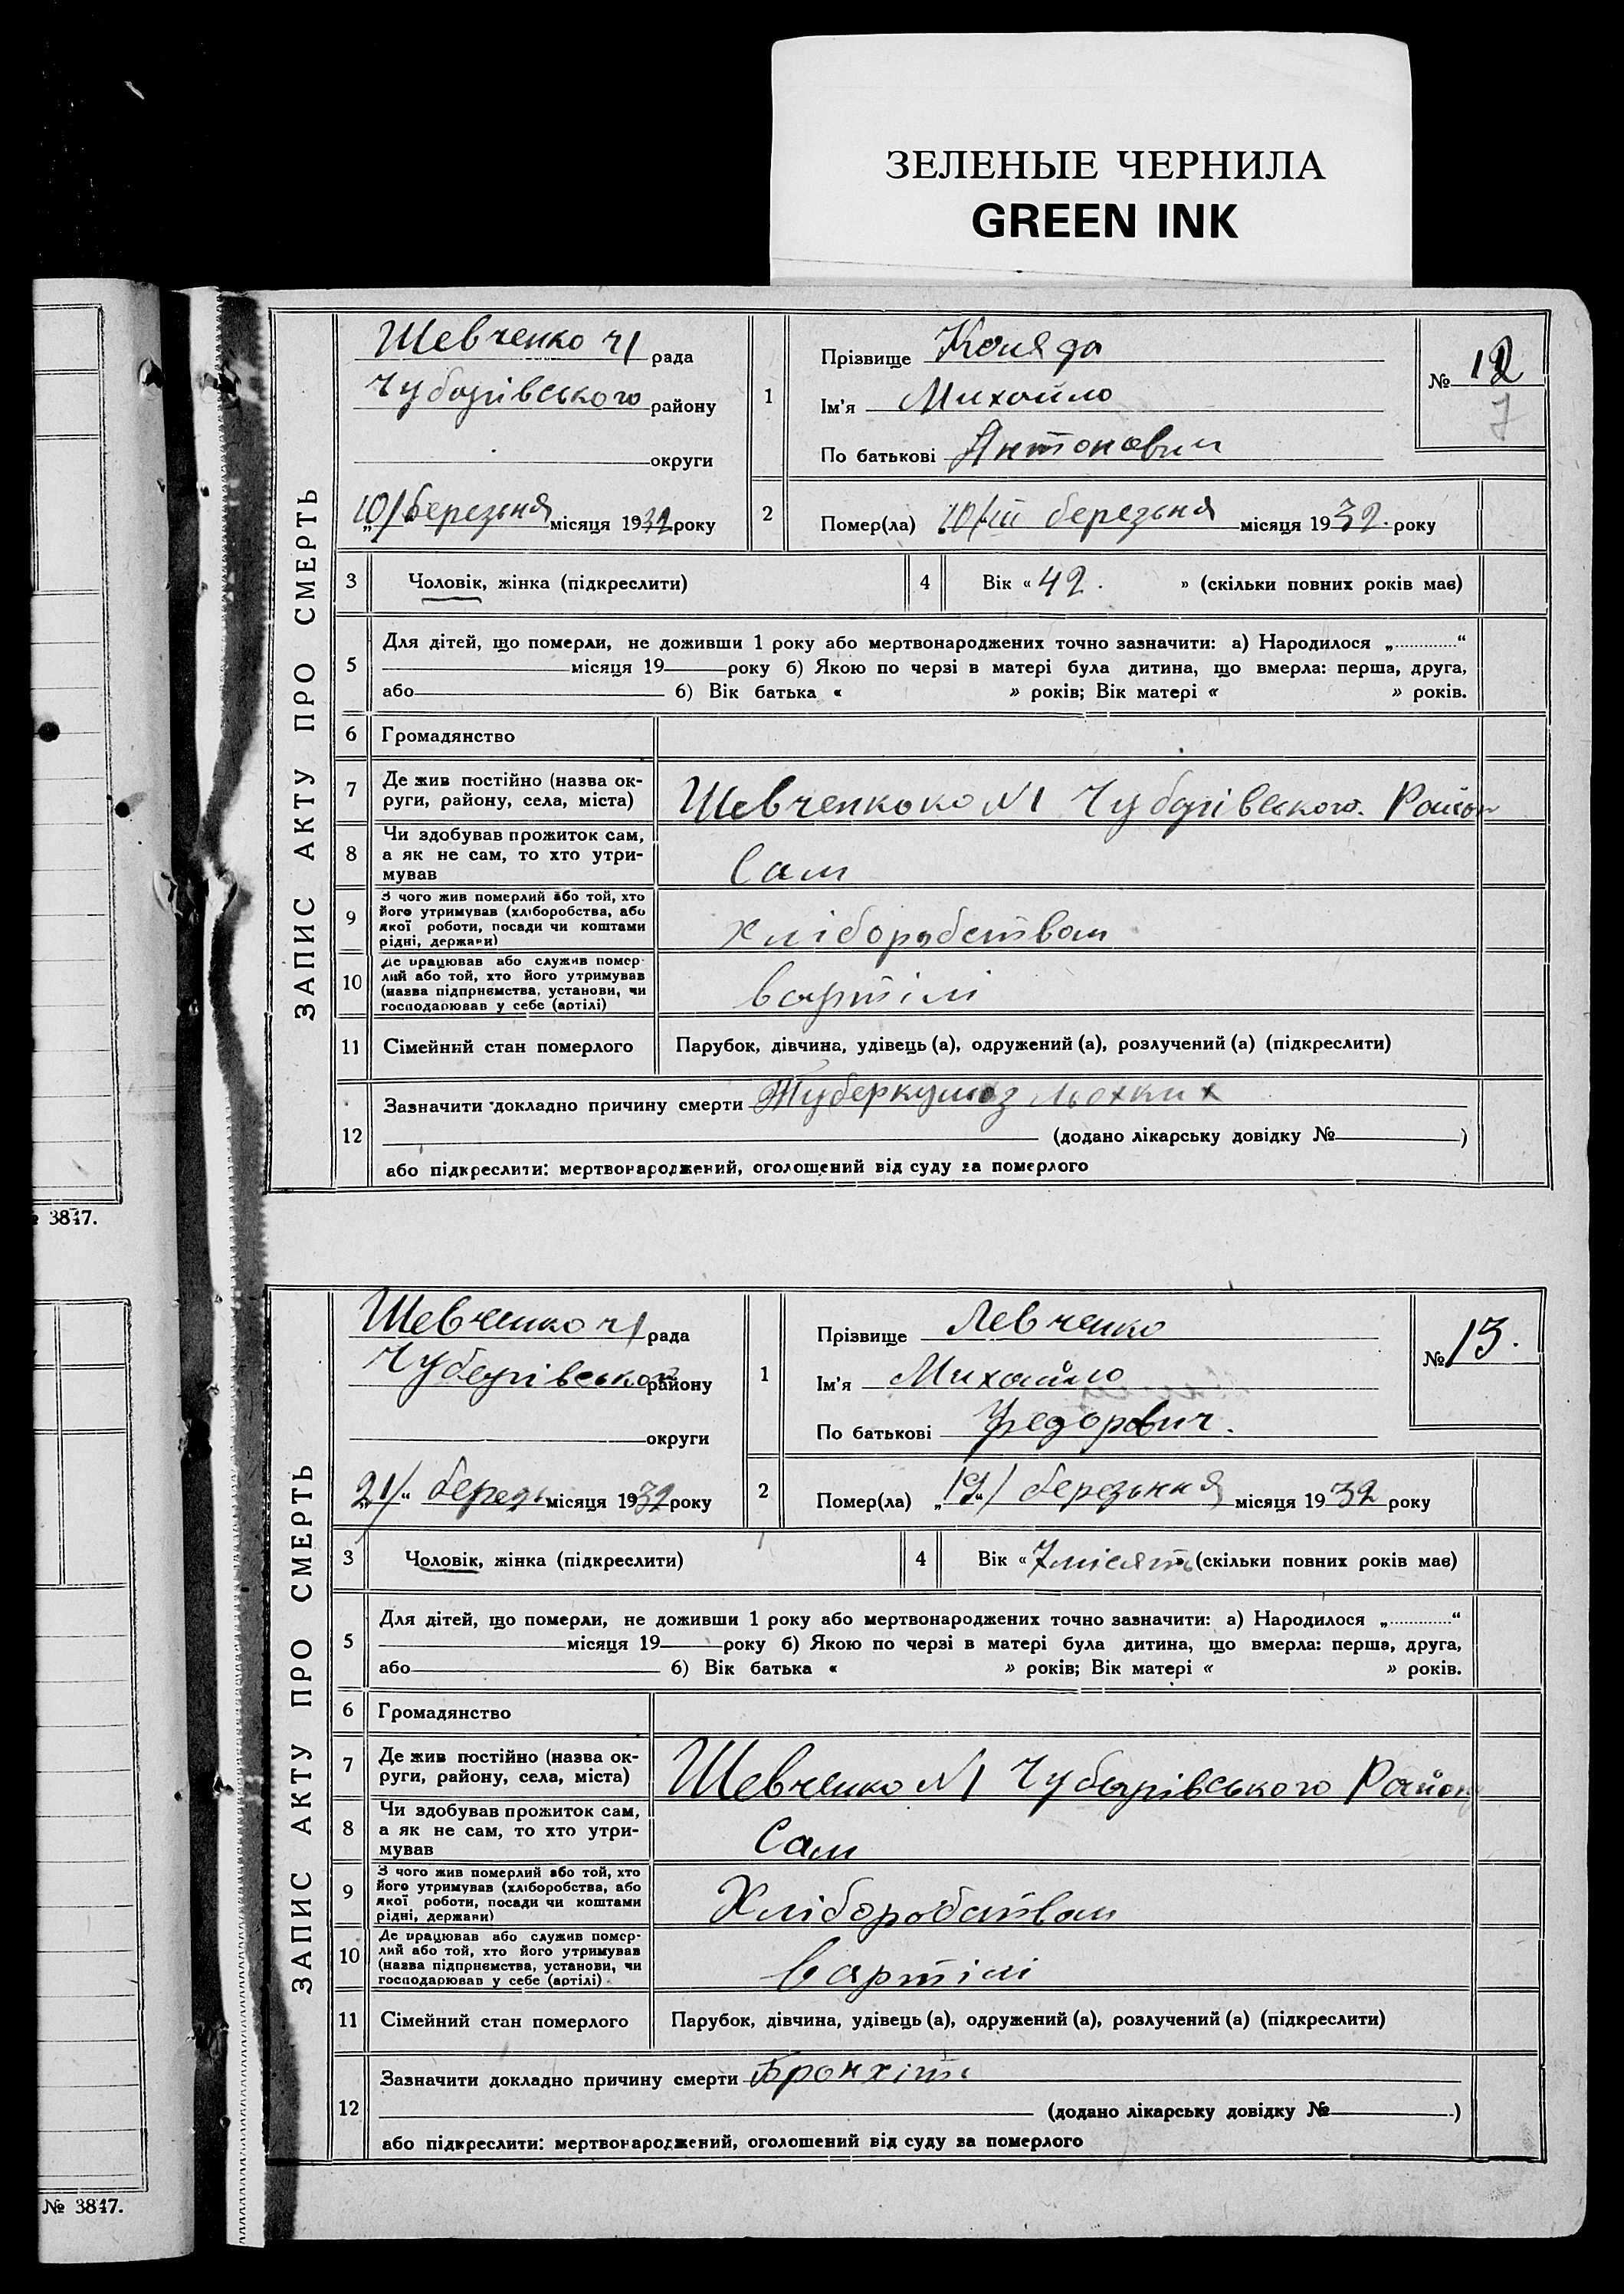 ЗЕЛЕНЫЕ ЧЕРНИЛА
GREEN INK
ЗАПИС АКТУ ПРО СМЕРТЬ
Шевченко ч1 рада
Чубарівського району
округи
„10/ березня місяця 1932 року
1
Прізвище Коляда
Ім'я Михайло
По батькові Антонович
№ 12
7
2
Помер(ла) 10/III березьня місяця 1932. року
3 Чоловік, жінка (підкреслити)
4 Вік «42. » (скільки повних років має)
5
Для дітей, що померли, не доживши 1 року або мертвонароджених точно зазначити: а) Народилося „............“
місяця 19 року б) Якою по черзі в матері була дитина, що вмерла: перша, друга,
або б) Вік батька « » років; Вік матері « » років.
6 Громадянство
7 Де жив постійно (назва ок-
руги, району, села, міста)
Шевченкоко №1 Чубарівського. Район
8 Чи здобував прожиток сам,
а як не сам, то хто утри-
мував
Сам
9 З чого жив померлий або той, хто
його утримував (хліборобства, або
якої роботи, посади чи коштами
рідні, держави)
хліборобством
10 Де працював або служив помер-
лий або той, хто його утримував
(назва підприємства, установи, чи
господарював у себе (артілі)
вартілі
11 Сімейний стан померлого
Парубок, дівчина, удівець (а), одружений (а), розлучений (а) (підкреслити)
12
Зазначити докладно причину смерти Туберкульоз льохких
(додано лікарську довідку № )
або підкреслити: мертвонароджений, оголошений від суду за померлого
№ 3847.
ЗАПИС АКТУ ПРО СМЕРТЬ
Шевченко ч1 рада
Чубарівського району
округи
„21/“ березь місяця 1932 року
1
Прізвище Левченко
Ім'я Михайло
По батькові Федорович.
№ 13.
2
Помер(ла) „19“/ березьня місяця 1932 року
3 Чоловік, жінка (підкреслити)
4 Вік «7 місять» (скільки повних років має)
5
Для дітей, що померли, не доживши 1 року або мертвонароджених точно зазначити: а) Народилося „............“
місяця 19 року б) Якою по черзі в матері була дитина, що вмерла: перша, друга,
або б) Вік батька « » років; Вік матері « » років.
6 Громадянство
7 Де жив постійно (назва ок-
руги, району, села, міста)
Шевченко №1 Чубарівського Району
8 Чи здобував прожиток сам,
а як не сам, то хто утри-
мував
Сам
9 З чого жив померлий або той, хто
його утримував (хліборобства, або
якої роботи, посади чи коштами
рідні, держави)
Хліборобством
10 Де працював або служив помер-
лий або той, хто його утримував
(назва підприємства, установи, чи
господарював у себе (артілі)
вартілі
11 Сімейний стан померлого
Парубок, дівчина, удівець (а), одружений (а), розлучений (а) (підкреслити)
12
Зазначити докладно причину смерти Бронхіт
(додано лікарську довідку № )
або підкреслити: мертвонароджений, оголошений від суду за померлого
№ 3847.